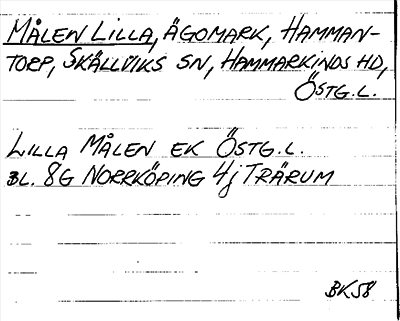 MÅLEN LILLA, ÄGOMARK, HAMMAN-
TORP, SKÄLLVIKS SN, HAMMARKINDS HD,
ÖSTG.L.
LILLA MÅLEN EK ÖSTG.L.
BL. 8G NORRKÖPING 4j TRÄRUM
BK58